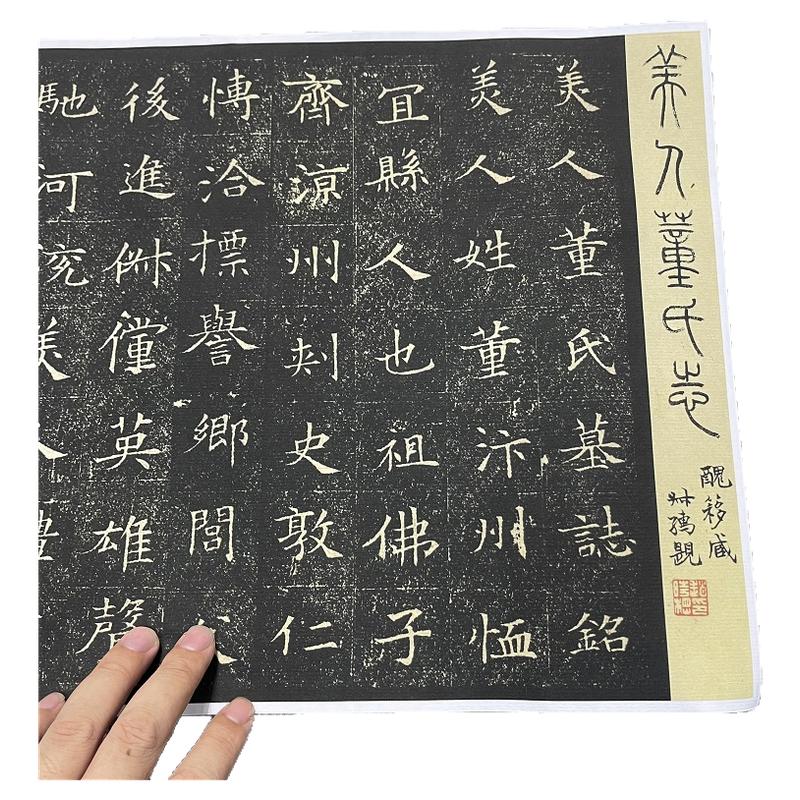 美人董氏志
醜簃藏
叔孺題
美人董氏墓誌銘
美人姓董汴州恤
冝縣人也祖佛子
齊涼州刺史敦仁
慱洽標譽鄉閭
後進俶儻英雄聲
馳河兗美人